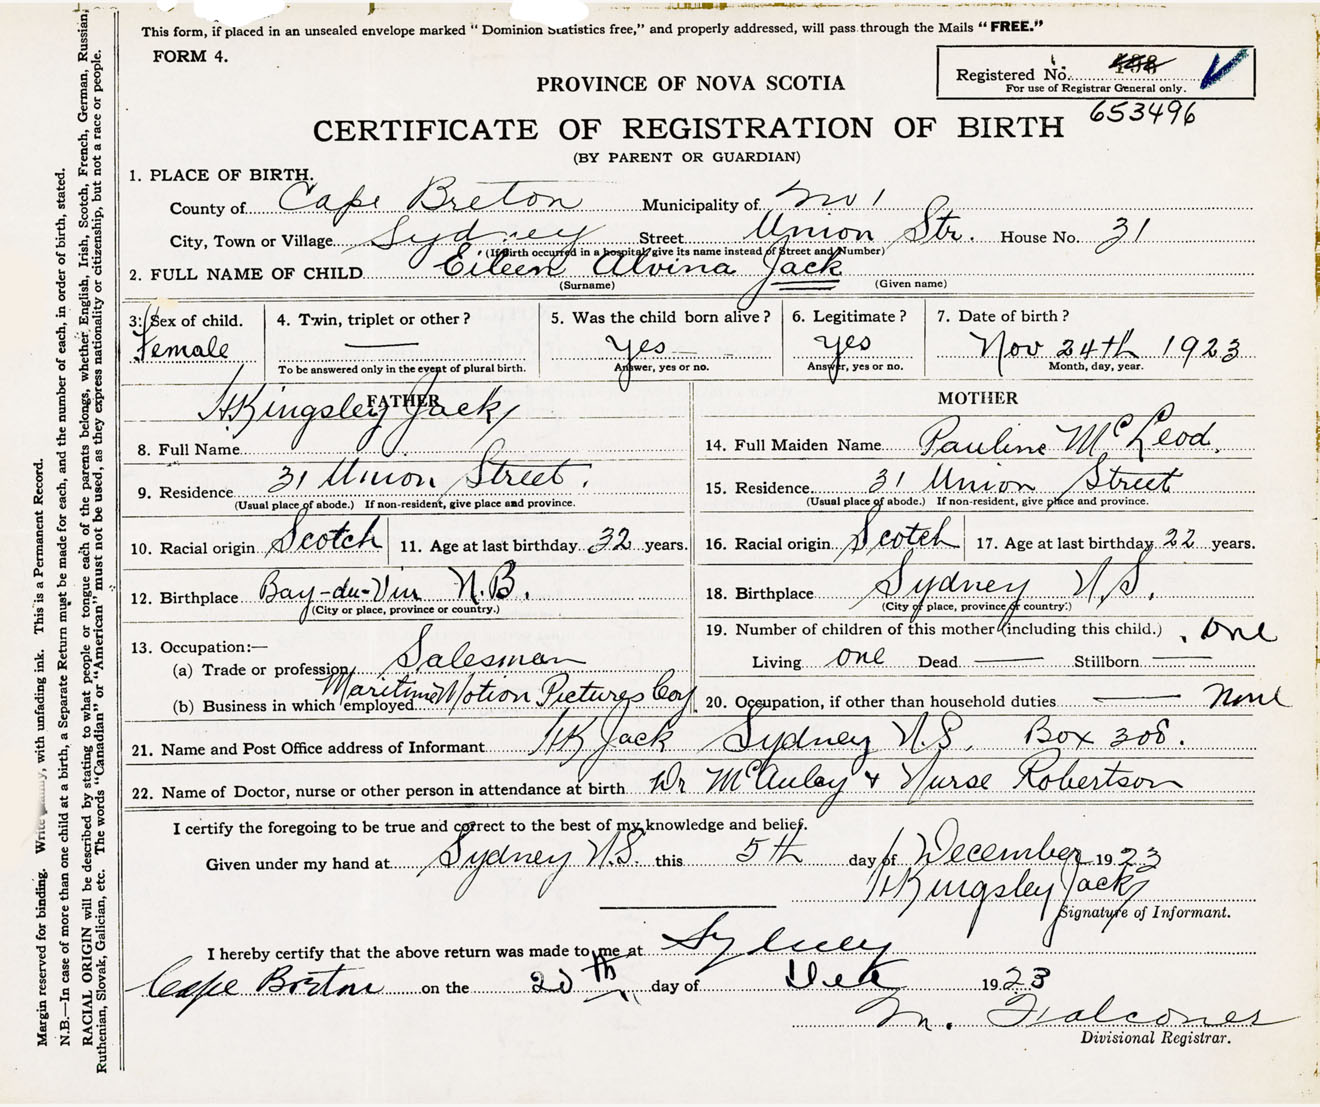 This form, if placed in an unsealed envelope marked "Dominion Statistics free," and properly addressed, will pass through the Mails "FREE."
FORM 4.
PROVINCE OF NOVA SCOTIA
Registered No.
For use of Registrar General only.
653496
CERTIFICATE OF REGISTRATION OF BIRTH
(BY PARENT OR GUARDIAN)
1. PLACE OF BIRTH.
County of Cape Breton Municipality of No 1
City, Town or Village Sydney Street Union Str. House No. 31
(If birth occurred in a hospital, give its name instead of Street and Number)
2. FULL NAME OF CHILD Eileen Alvina Jack
(Surname) (Given name)
3. Sex of child. Female
4. Twin, triplet or other? —
To be answered only in the event of plural birth.
5. Was the child born alive? Yes
Answer, yes or no.
6. Legitimate? Yes
Answer, yes or no.
7. Date of birth? Nov 24th 1923
Month, day, year.
FATHER
H Kingsley Jack
8. Full Name
9. Residence 31 Union Street.
(Usual place of abode.) If non-resident, give place and province.
10. Racial origin Scotch 11. Age at last birthday 32 years.
12. Birthplace Bay-du-Vin N.B.
(City or place, province or country.)
13. Occupation:—
(a) Trade or profession Salesman
(b) Business in which employed Maritime Motion Pictures Coy
MOTHER
14. Full Maiden Name Pauline McLeod.
15. Residence 31 Union Street
(Usual place of abode.) If non-resident, give place and province.
16. Racial origin Scotch 17. Age at last birthday 22 years.
18. Birthplace Sydney N.S.
(City or place, province or country.)
19. Number of children of this mother (including this child.) . one
Living one Dead — Stillborn —
20. Occupation, if other than household duties — None
21. Name and Post Office address of Informant HK Jack Sydney N.S. Box 308.
22. Name of Doctor, nurse or other person in attendance at birth Dr McAuley & Nurse Robertson
I certify the foregoing to be true and correct to the best of my knowledge and belief.
Given under my hand at Sydney N.S. this 5th day of December 1923
H Kingsley Jack
Signature of Informant.
I hereby certify that the above return was made to me at Sydney
Cape Breton on the 20th day of Dec 1923
M. Falconer
Divisional Registrar.
Margin reserved for binding. Write with unfading ink. This is a Permanent Record.
N.B.—In case of more than one child at a birth, a Separate Return must be made for each, and the number of each, in order of birth, stated.
RACIAL ORIGIN will be described by stating to what people or tongue each of the parents belongs, whether English, Irish, Scotch, French, German, Russian,
Ruthenian, Slovak, Galician, etc. The words "Canadian" or "American" must not be used, as they express nationality or citizenship, but not a race or people.